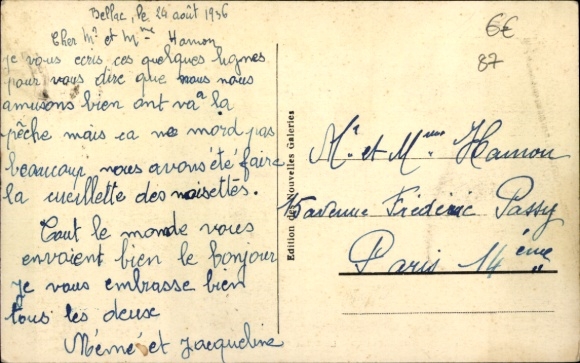 Bellac, le 24 août 1936
Cher Mr et Mme Hamon
je vous ecris ces quelques lignes
pour vous dire que nous nous
amusons bien ont va a la
pêche mais ca ne mord pas
beaucoup nous avons été faire
la cueillette des noisettes.
Tout le monde vous
envoient bien le bonjour
je vous embrasse bien
tous les deux
Mémé et Jacqueline
Edition des Nouvelles Galeries
6€
87
Mr. et Mme Hamon
15 avenue Fréderic Passy
Paris 14ème